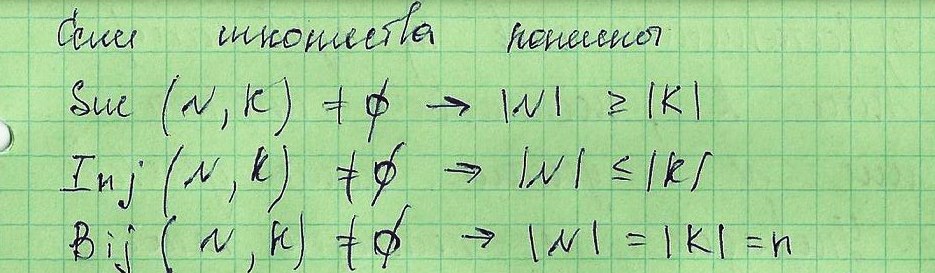 Если множества конечны
Suc (N, K) ≠ ∅ → |N| ≥ |K|
Inj (N, K) ≠ ∅ → |N| ≤ |K|
Bij (N, K) ≠ ∅ → |N| = |K| = n